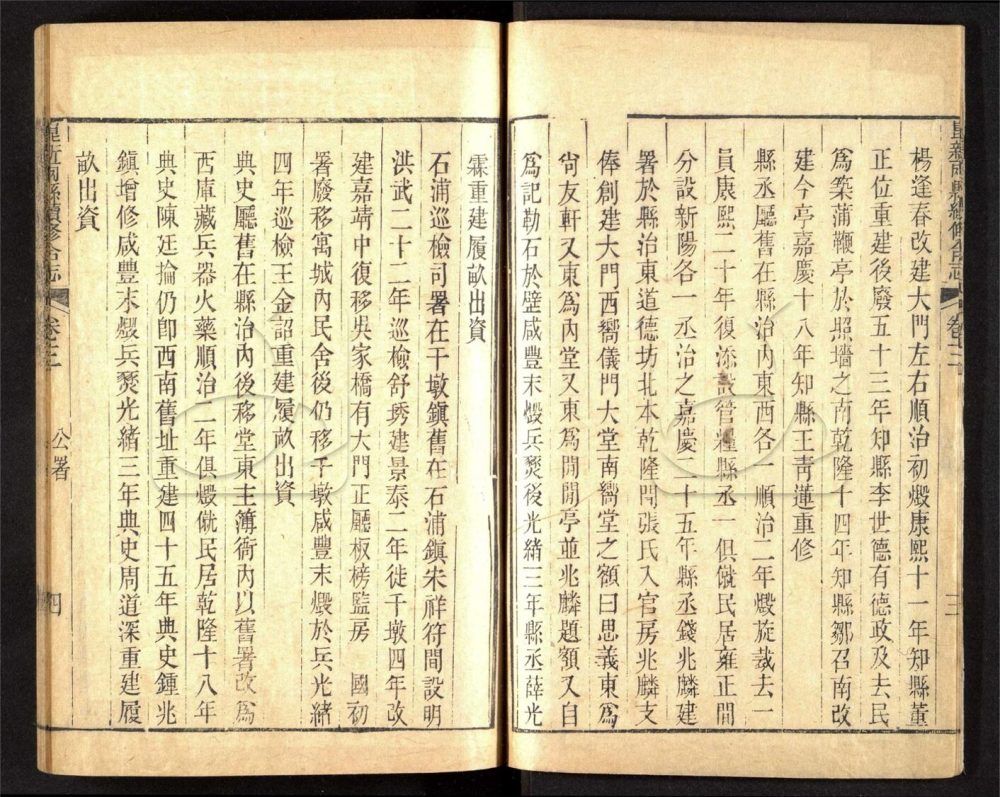 楊逢春改建大門左右順治初燬康熙十一年知縣董
正位重建後廢五十三年知縣李世德有德政及去民
爲築蒲鞭亭於照墻之南乾隆十四年知縣鄒召南改
建今亭嘉慶十八年知縣王青蓮重修
縣丞廳舊在縣治內東西各一順治二年燬旋裁去一
員康熙二十年復添設管糧縣丞一俱僦民居雍正間
分設新陽各一丞治之嘉慶二十五年縣丞錢兆麟建
署於縣治東道德坊北本乾隆間張氏入官房兆麟支
俸創建大門西嚮儀門大堂南嚮堂之額曰思義東爲
尙友軒又東爲內堂又東爲閒閒亭並兆麟題額又自
爲記勒石於壁咸豐末燬兵燹後光緒三年縣丞薛光
霖重建履畝出資
石浦巡檢司署在千墩鎭舊在石浦鎭宋祥符間設明
洪武二十二年巡檢舒琇建景泰二年徙千墩四年改
建嘉靖中復移吳家橋有大門正廳板榜監房 國初
署廢移寓城內民舍後仍移千墩咸豐末燬於兵光緒
四年巡檢王金詔重建履畝出資
典史廳舊在縣治內後移堂東主簿衙內以舊署改爲
西庫藏兵器火藥順治二年俱燬僦民居乾隆十八年
典史陳廷掄仍卽西南舊址重建四十五年典史鍾兆
鎭增修咸豐末燬兵燹光緒三年典史周道深重建履
畝出資
崑新兩縣續修合志
卷三
公署
四